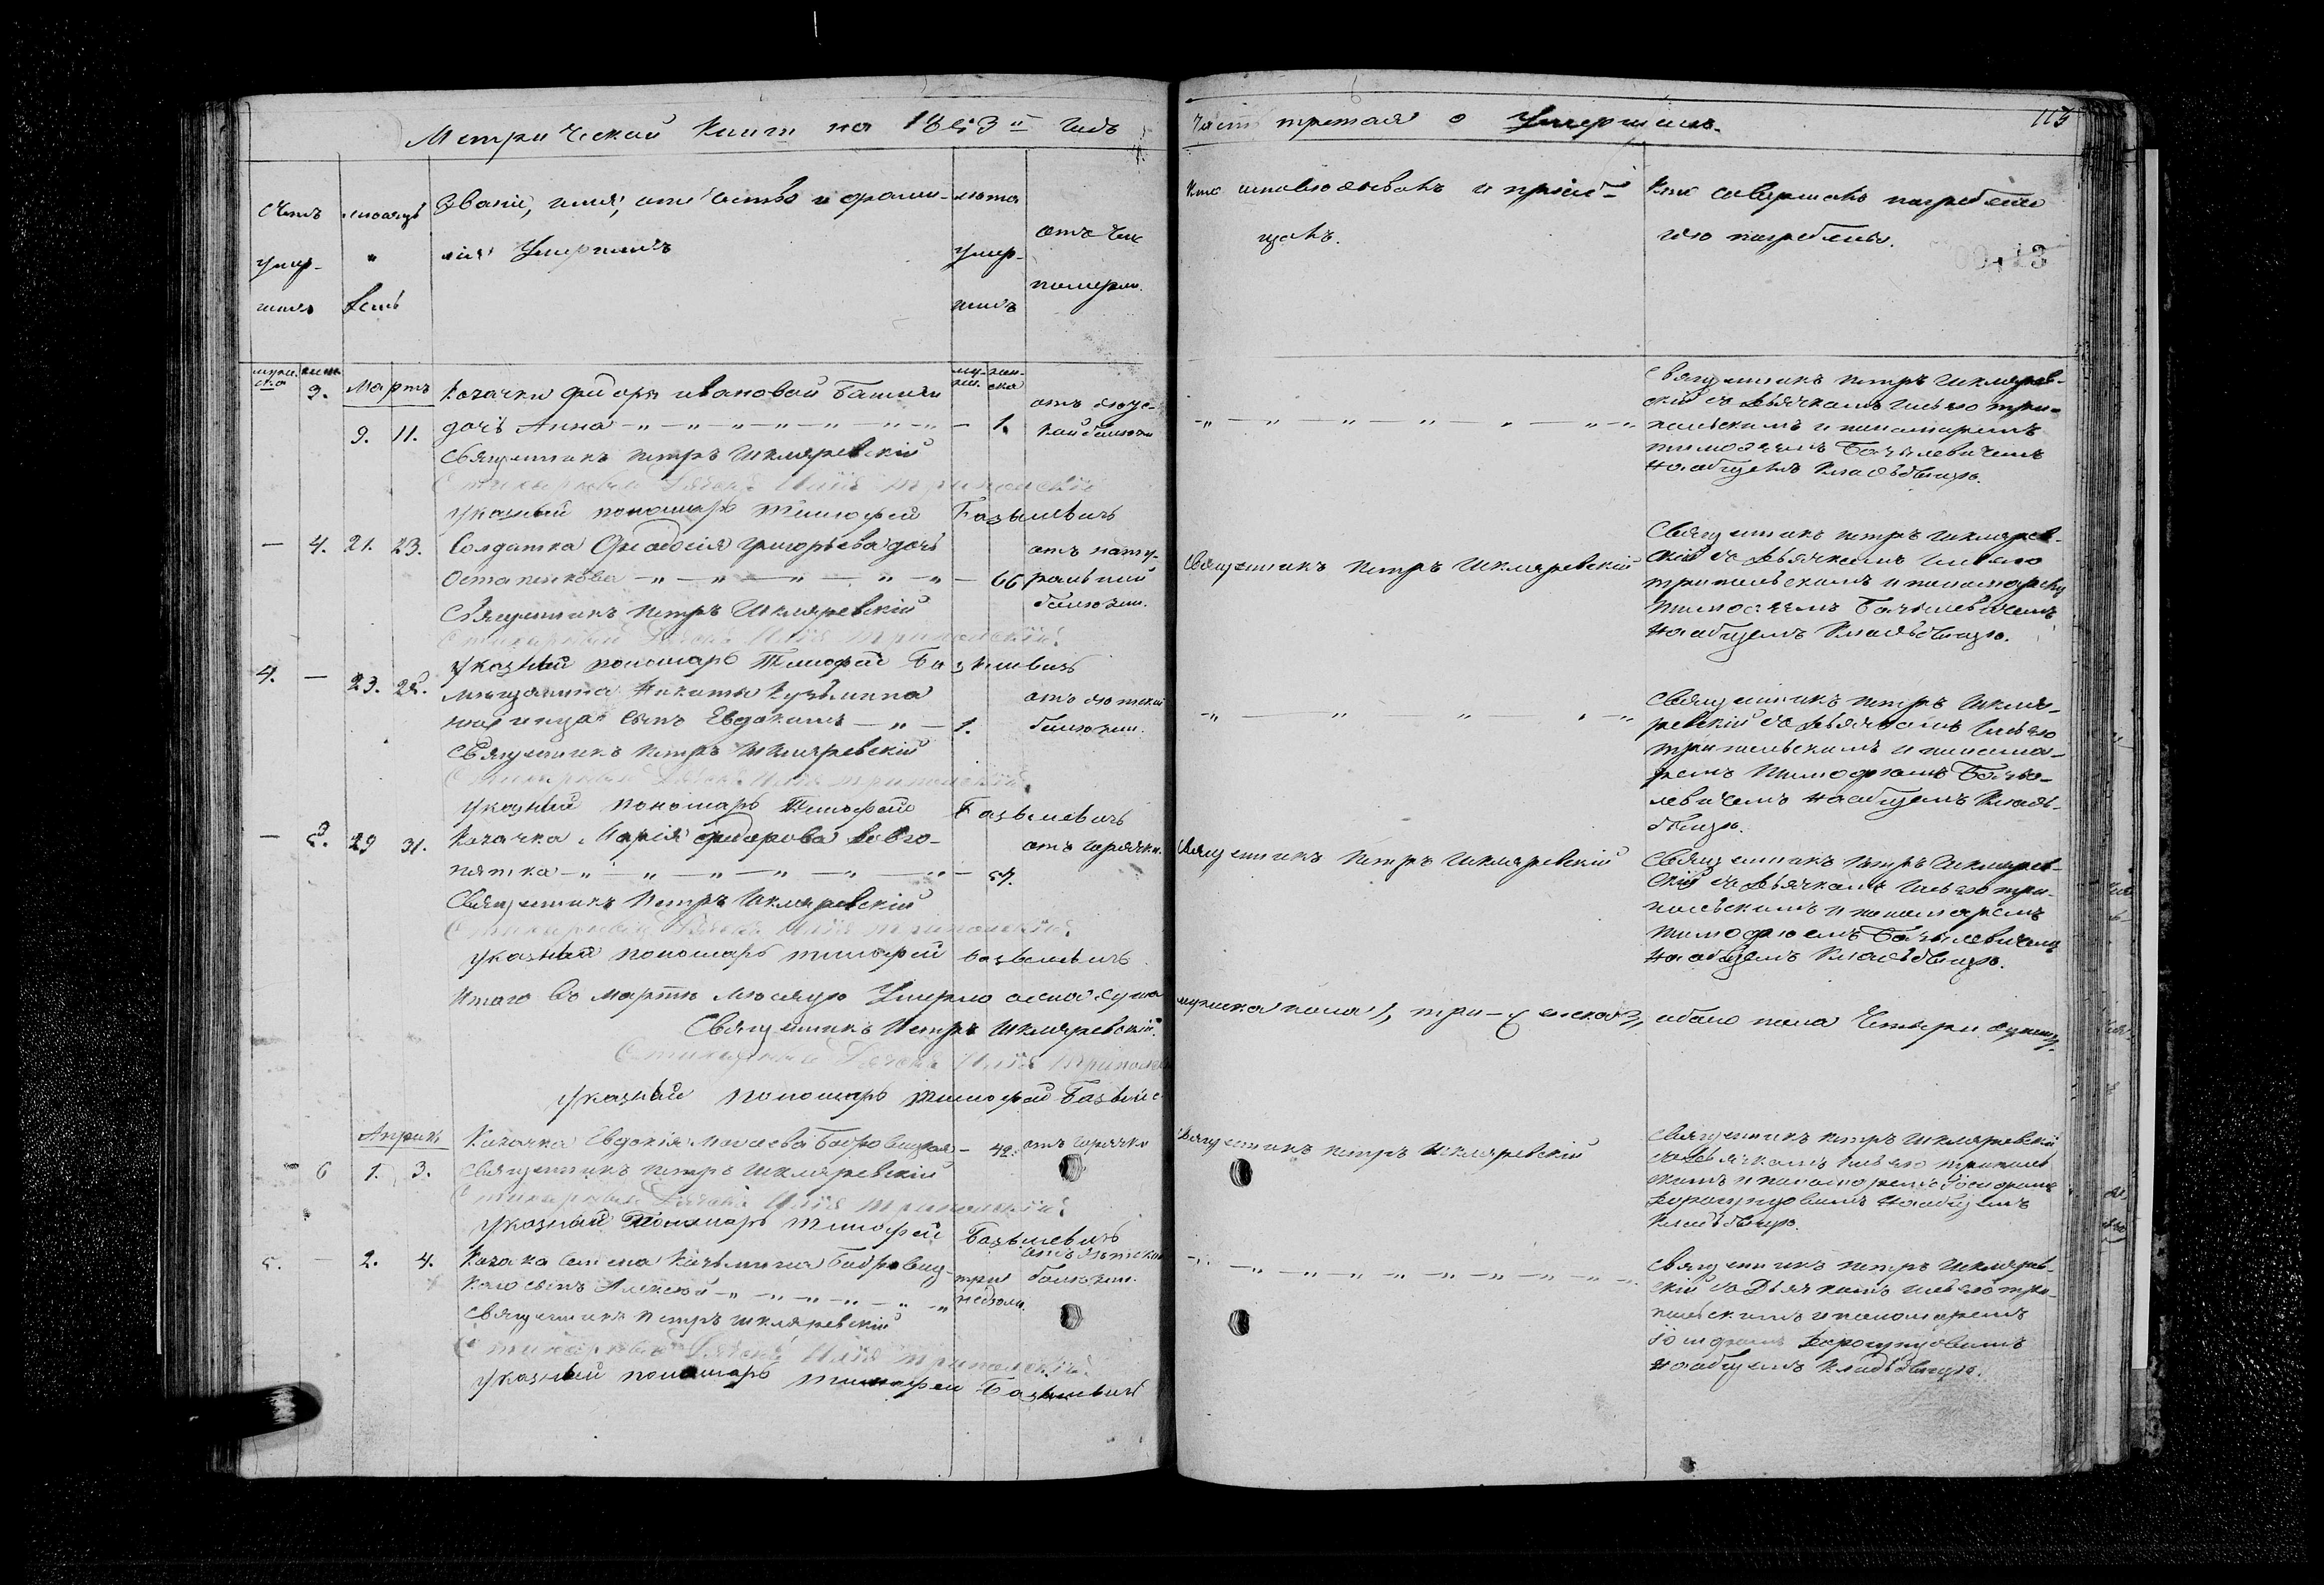 Метрической Книги на 1853й годъ
Часть третая о Умершихъ.
113
Счетъ умер-шихъ
месяцъ и день
Званіе, имя, отчество и фамил-
лія Умершихъ
лета умер-шихъ
отъ чего померли.
Кто исповедывалъ и пріоб-
щалъ.
Кто совершалъ погребеніе
и где погребены.
Мартъ
3. 9. 11. Козачки Федоры Ивановой
дочь Анна 1.
Священникъ Петръ Шкляревскій
съ Дьячкомъ Ильею Три-
польскимъ и пономаремъ
Тимофеемъ Базылевичемъ
на общемъ кладбище.
Священникъ Петръ Шкляревскій
Стихарный Дячокъ Илія Трипольскій
Указный пономарь Тимофей Базылевичъ
— 4. 21. 23. Солдатка Феодосія Григорьева дочь
Остапенкова 66
отъ нату-
ральной
болезни.
Священникъ Петръ Шкляревскій
Священникъ Петръ Шклярев-
скій съ Дьячкомъ Ильею
Трипольскимъ и пономаремъ
Тимофеемъ Базылевичемъ
на общемъ кладбище.
Священникъ Петръ Шкляревскій
Стихарный Дячокъ Илія Трипольскій
Указный пономарь Тимофей Базылевичъ
4. — 23. 25. Мещанина Никиты Кузьмина
сынъ Евдокимъ 1.
отъ детской
болезни.
Священникъ Петръ Шкля-
ревскій съ Дьячкомъ Ильею
Трипольскимъ и понома-
ремъ Тимофеемъ Базы-
левичемъ на общемъ клад-
бище.
Священникъ Петръ Шкляревскій
Стихарный Дячокъ Илія Трипольскій
Указный пономарь Тимофей Базылевичъ
— 29 31. Козачка Марія Федорова
57.
отъ горячки.
Священникъ Петръ Шкляревскій
Священникъ Петръ Шклярев-
скій съ Дьячкомъ Ильею Три-
польскимъ и пономаремъ
Тимофеемъ Базылевичемъ
на общемъ кладбище.
Священникъ Петръ Шкляревскій
Стихарный Дячокъ Илія Трипольскій
Указный пономарь Тимофей Базылевичъ
Итого въ Марте месяце Умерло
мужеска пола 1, три женска 3, обоего пола Четыри души 4.
Священникъ Петръ Шкляревскій
Стихарный Дячокъ Илія Трипольскій
Указный пономарь Тимофей
Апрель
6 1. 3. Козачка Евдокія Бобровицкая — 42. отъ горячки
Священникъ Петръ Шкляревскій
Священникъ Петръ Шкляревскій
съ Дьячкомъ Ильею Триполь-
скимъ и пономаремъ
на общемъ
кладбище.
Священникъ Петръ Шкляревскій
Стихарный Дячокъ Илія Трипольскій
Указный Пономарь Тимофей Базылевичъ
5. — 2. 4. Козака Семена Бобровиц-
каго сынъ Алексей три недели
отъ детской
болезни.
Священникъ Петръ Шклярев-
скій съ Дьячкомъ Ильею Три-
польскимъ и пономаремъ
на общемъ кладбище.
Священникъ Петръ Шкляревскій
Стихарный Дячокъ Илія Трипольскій
Указный пономарь Тимофей Базылевичъ